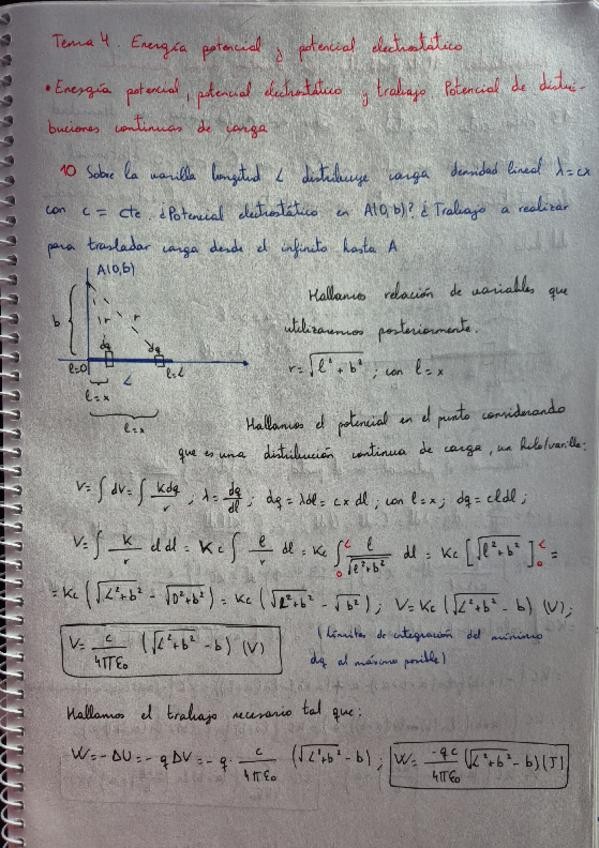 Tema 4. Energía potencial y potencial electrostático
• Energía potencial, potencial electrostático y trabajo Potencial de distri-
buciones continuas de carga
10 Sobre la varilla longitud L distribuye carga densidad lineal λ=cx
con c = cte. ¿Potencial electrostático en A(0,b)? ¿Trabajo a realizar
para trasladar carga desde el infinito hasta A
A(0,b)
Hallamos relación de variables que
utilizaremos posteriormente.
b
r
r
dq
dq
r=√(l²+b²) ; con l=x
l=0
L
l=L
l=x
l=x
Hallamos el potencial en el punto considerando
que es una distribución continua de carga, un hilo/varilla:
V=∫dV=∫ Kdq/r , λ=dq/dl ; dq=λdl=cx dl ; con l=x ; dq=cldl ;
V=∫ K/r cl dl = Kc ∫ l/r dl = Kc ∫₀ᴸ l/√(l²+b²) dl = Kc [√(l²+b²)]₀ᴸ =
= Kc (√(L²+b²) - √(0²+b²)) = Kc (√(L²+b²) - √b²) ; V=Kc (√(L²+b²) - b) (V) ;
V= c/4πε₀ (√(L²+b²) - b) (V)
(Límites de integración del mínimo
dq al máximo posible)
Hallamos el trabajo necesario tal que:
W=-ΔU=-qΔV=-q· c/4πε₀ (√(L²+b²) - b) ; W= -qc/4πε₀ (√(L²+b²) - b) (J)